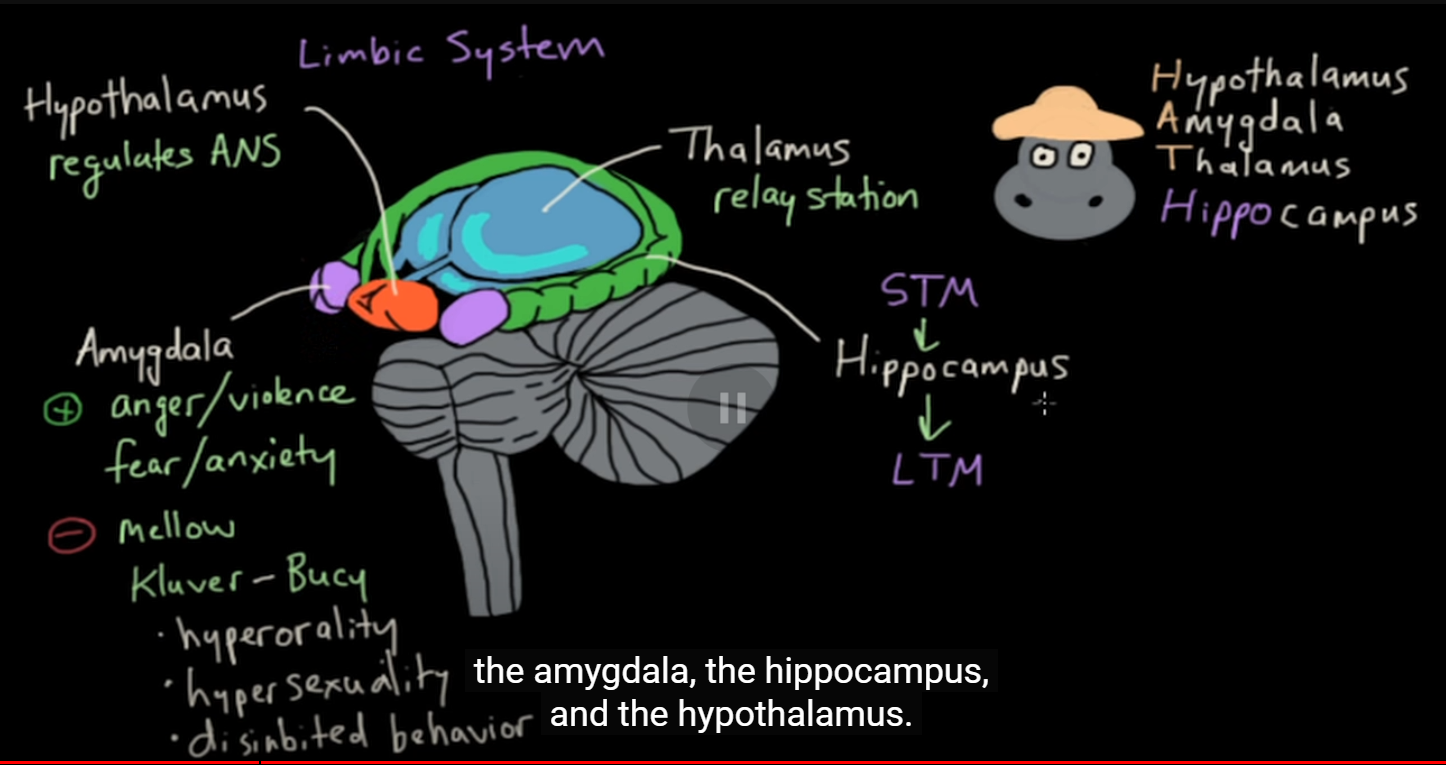 Limbic System
Hypothalamus
regulates ANS
Thalamus
relay station
Hypothalamus
Amygdala
Thalamus
Hippocampus
STM
Hippocampus
LTM
Amygdala
+ anger/violence
fear/anxiety
− Mellow
Kluver-Bucy
· hyperorality
· hypersexuality
· disinbited behavior
the amygdala, the hippocampus,
and the hypothalamus.